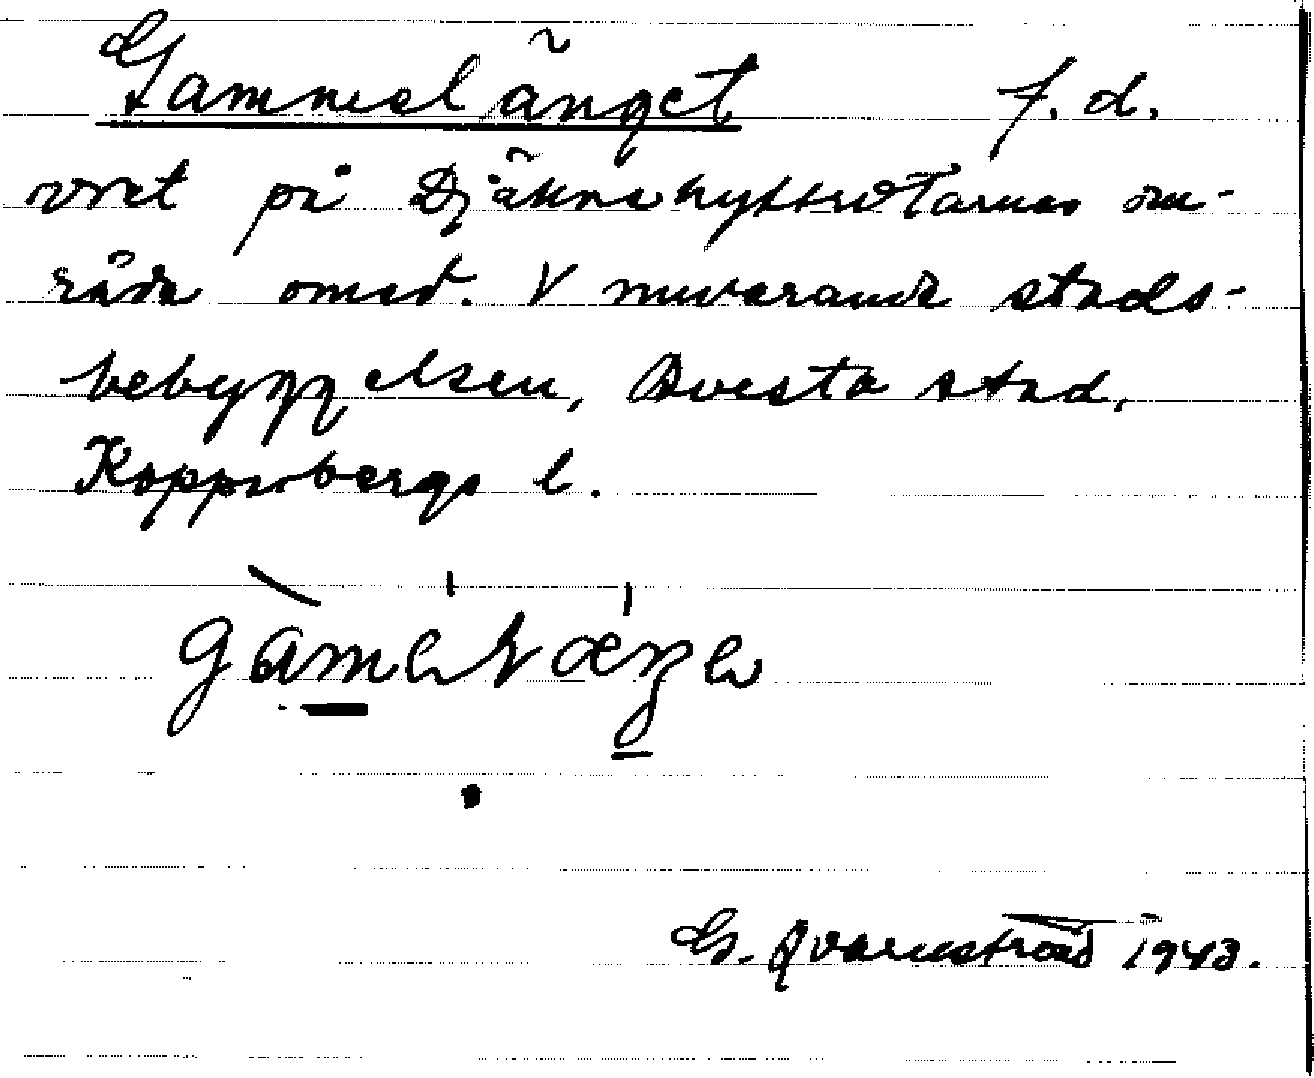 Gammelänget f. d.
vret på Djäknehyttetäktarnas om-
råde omed. V nuvarande stads-
bebyggelsen, Avesta stad,
Kopparbergs l.
G. Qvarnström 1943.